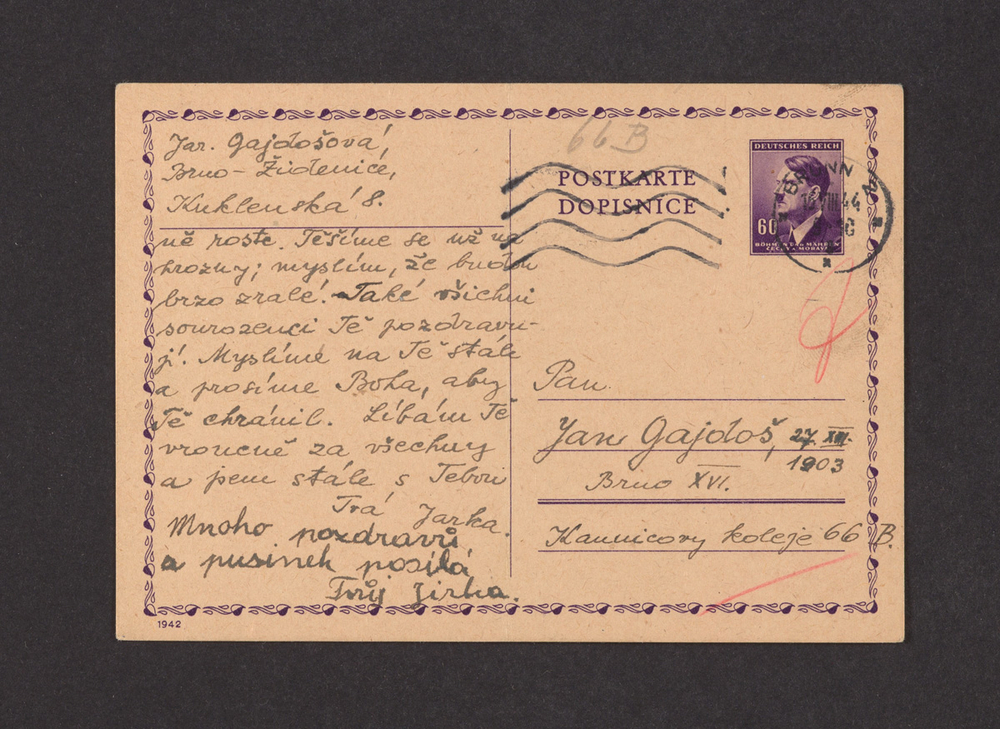 Jar. Gajdošová,
Brno-Židenice,
Kuklenská 8.
ně roste. Těšíme se už na
hrozny; myslím, že budou
brzo zralé! Také všichni
sourozenci Tě pozdravu-
jí. Myslíme na Tě stále
a prosíme Boha, aby
Tě chránil. Líbám Tě
vroucně za všechny
a jsem stále s Tebou
Tvá Jarka.
Mnoho pozdravů
a pusinek posílá
Tvůj Jirka.
1942
66B
POSTKARTE
DOPISNICE
DEUTSCHES REICH
60
BÖHMEN UND MÄHREN
ČECHY A MORAVA
BRÜNN
VIII 44
Pan
Jan Gajdoš, 27. XII.
1903
Brno XVI.
Kaunicovy koleje 66 B.